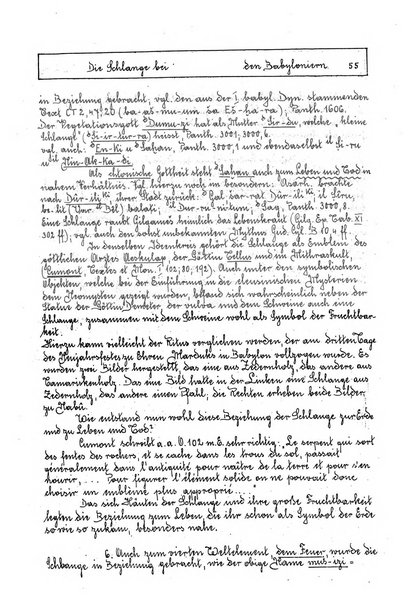 Die Schlange bei den Babyloniern 55
in Beziehung gebracht; vgl. den aus der I. babyl. Dyn. stammenden
Text CT 2, 47, 20 (ba-aš-mu-um ša Eš-ha-ra); Panth. 1606.
Der Vegetationsgott Dumu-zi hat als Mutter Sir-du, welche „kleine
Schlange" (Sir-tur-ra) heisst, Panth. 3001; 3000, 6.
vgl. auch: En-Ki u Sahan, Panth. 3000, 1 und ebendaselbst il Si-ru
u il Nin-Ate-Ka-di.
Als chtonische Gottheit steht Sahan auch zum Leben und Tod in
nahem Verhältnis. Vgl. hierzu noch im besondern: Asarh. brachte
nach Dûr-ili ki ihrer Stadt zurück: Gal šar-rat Dûr-ili ki il Siru,
be-lit Bêl) balati; il Dur-ru-ni-tum; Sag, Panth. 3000, 8.
Eine Schlange raubt Gilgameš heimlich das Lebenskraut (Gilg. Ep. Tab. XI
302 ff), vgl. auch den sonst unbekannten Mythus Gud. Cyl. B 10 ff.
In denselben Ideenkreis gehört die Schlange als Emblem des
göttlichen Arztes Aeskulap, der Göttin Tellus und im Mithraskult,
(Cumont, Textes et Mon. I 102; 30; 192). Auch unter den symbolischen
Objekten, welche bei der Einführung in die eleusinischen Mysterien
dem Neomysten gezeigt wurden, befand sich wahrscheinlich neben der
Statue der Göttin Demeter, der vulva und dem Schweine auch eine
Schlange, zusammen mit dem Schweine wohl als Symbol der Fruchtbar-
keit.
Hierzu kann vielleicht der Ritus verglichen werden, der am dritten Tage
des Neujahrsfestes zu Ehren Marduks in Babylon vollzogen wurde. Es
wurden zwei Bilder hergestellt, das eine aus Zedernholz, das andere aus
Tamariskenholz. Das eine Bild hatte in der Linken eine Schlange aus
Zedernholz, das andere einen Pfahl, die Rechten erheben beide Bilder
zu Nabû.
Wie entstand nun wohl diese Beziehung der Schlange zur Erde
und zu Leben und Tod?
Cumont schreibt a.a.O. 102 m.E. sehr richtig: „Le serpent qui sort
des fentes des rochers, et se cache dans les trous du sol, passait
généralement dans l'antiquité pour naître de la terre et pour s'en
nourir, .... Pour figurer l'élément solide on ne pouvait donc
choisir un emblème plus approprié ... "
Das sich Häuten der Schlange und ihre große Fruchtbarkeit
legten die Beziehung zum Leben, die ihr schon als Symbol der Erde
so wie so zukam, besonders nahe.
6. Auch zum vierten Weltelement, dem Feuer, wurde die
Schlange in Beziehung gebracht, wie der obige Name muš-izi.